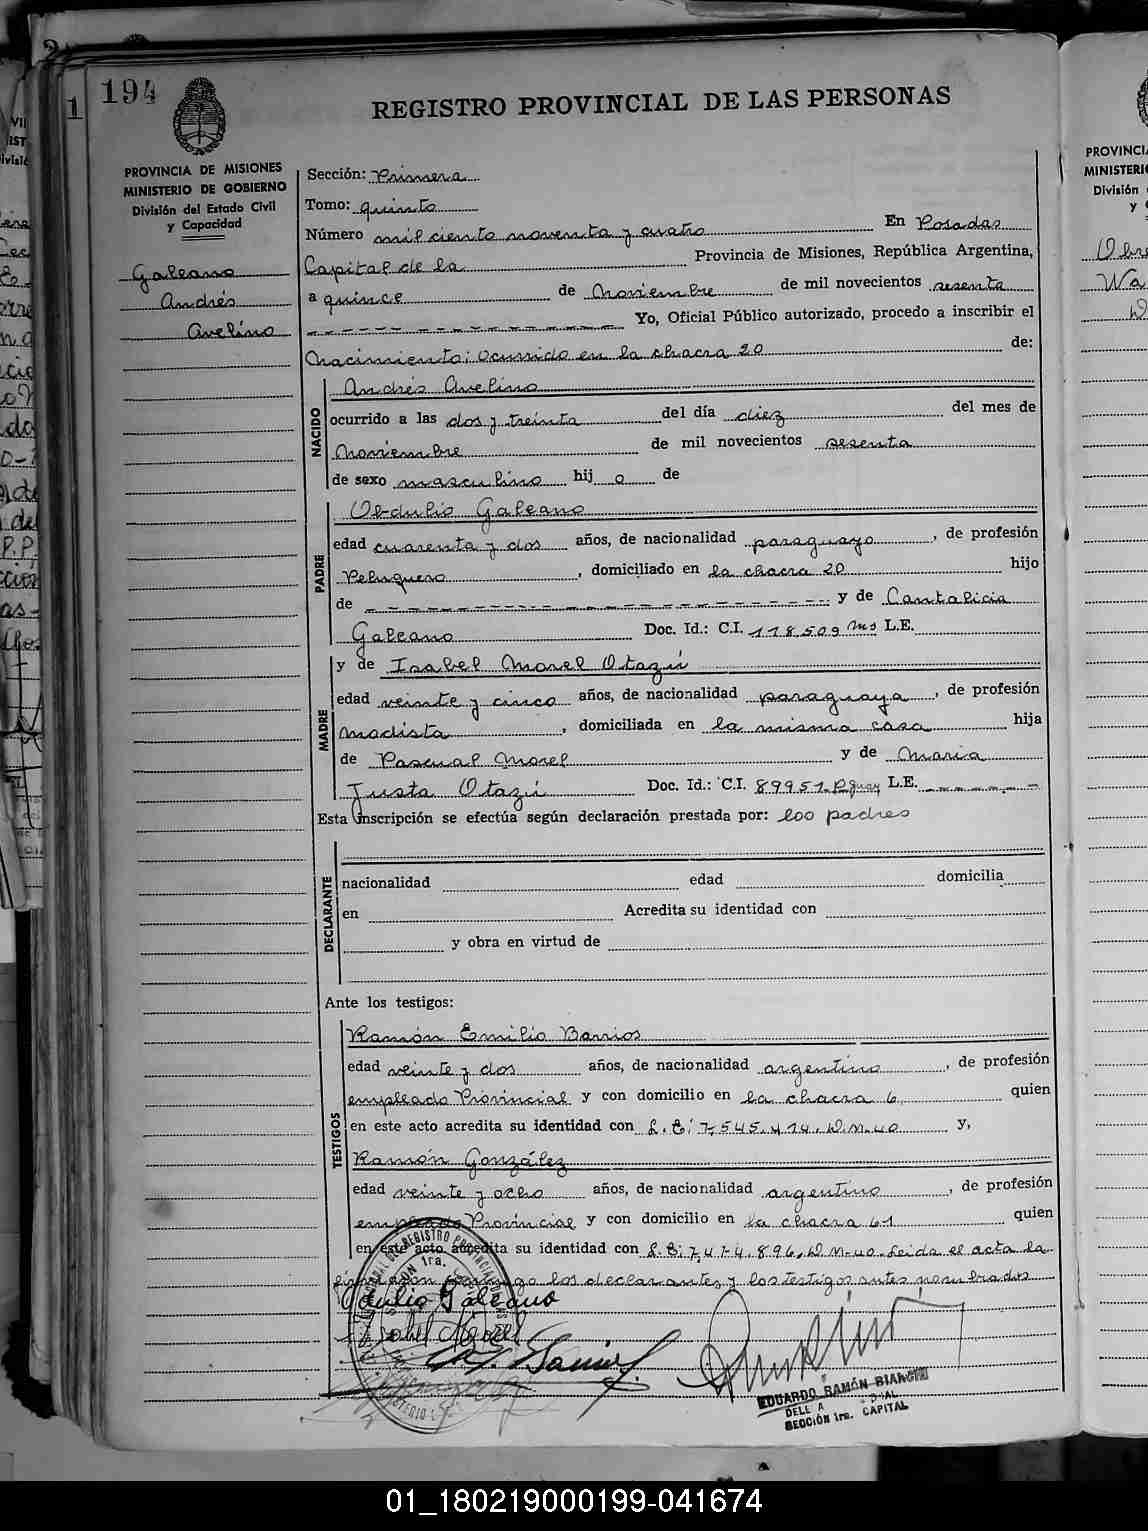 194
1
REGISTRO PROVINCIAL DE LAS PERSONAS
PROVINCIA DE MISIONES
MINISTERIO DE GOBIERNO
División del Estado Civil
y Capacidad
Galeano
Andrés
Avelino
Sección: Primera
Tomo: quinto
Número mil ciento noventa y cuatro En Posadas
Capital de la Provincia de Misiones, República Argentina,
a quince de Noviembre de mil novecientos sesenta
Yo, Oficial Público autorizado, procedo a inscribir el
Nacimiento: ocurrido en la chacra 20 de:
NACIDO
Andrés Avelino
ocurrido a las dos y treinta del día diez del mes de
Noviembre de mil novecientos sesenta
de sexo masculino hij o de
PADRE
Obdulio Galeano
edad cuarenta y dos años, de nacionalidad paraguayo, de profesión
Peluquero, domiciliado en la chacra 20 hijo
de y de Cantalicia
Galeano Doc. Id.: C.I. 118.509 Ms L.E.
MADRE
y de Isabel Morel Otazú
edad veinte y cinco años, de nacionalidad paraguaya, de profesión
Modista, domiciliada en la misma casa hija
de Pascual Morel y de Maria
Justa Otazú Doc. Id.: C.I. 89951 Pguay L.E.
Esta inscripción se efectúa según declaración prestada por: los padres
DECLARANTE
nacionalidad edad domicilia
en Acredita su identidad con
y obra en virtud de
Ante los testigos:
TESTIGOS
Ramón Emilio Barrios
edad veinte y dos años, de nacionalidad argentino, de profesión
empleado Provincial y con domicilio en la chacra 6 quien
en este acto acredita su identidad con L.E; 7.545.414. D.M.40 y,
Ramón González
edad veinte y ocho años, de nacionalidad argentino, de profesión
empleado Provincial y con domicilio en la chacra 61 quien
en este acto acredita su identidad con L.E; 7.474.896, D.M-40. Leida el acta la
firmaron conmigo los declarantes y los testigos antes nombrados
Galeano
Isabel Morel
EDUARDO RAMÓN BIANCHI
SECCIÓN 1ra. CAPITAL
PROVINCIA
MINISTERI
División
y C
01_180219000199-041674